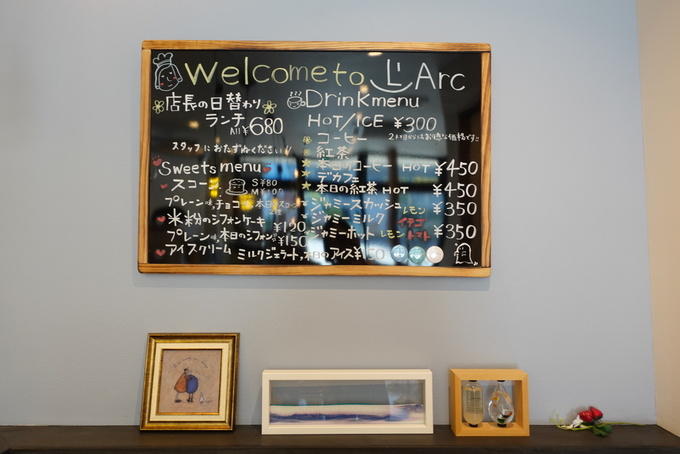 Welcome to L'Arc
店長の日替わり
ランチ
All¥680
スタッフにおたずねください
Sweets menu
スコーン S¥80
M¥100
プレーン味、チョコ味、本日スコーン
米粉のシフォンケーキ
¥120
プレーン味、本日のシフォン
¥150
アイスクリーム ミルクジェラート、本日のアイス
Drink menu
HOT/ICE ¥300
コーヒー
紅茶
本日のコーヒー HOT ¥450
デカフェ
本日の紅茶 HOT ¥450
ジャミースカッシュ レモン ¥350
ジャミーミルク イチゴ
ジャミーホット レモン トマト ¥350